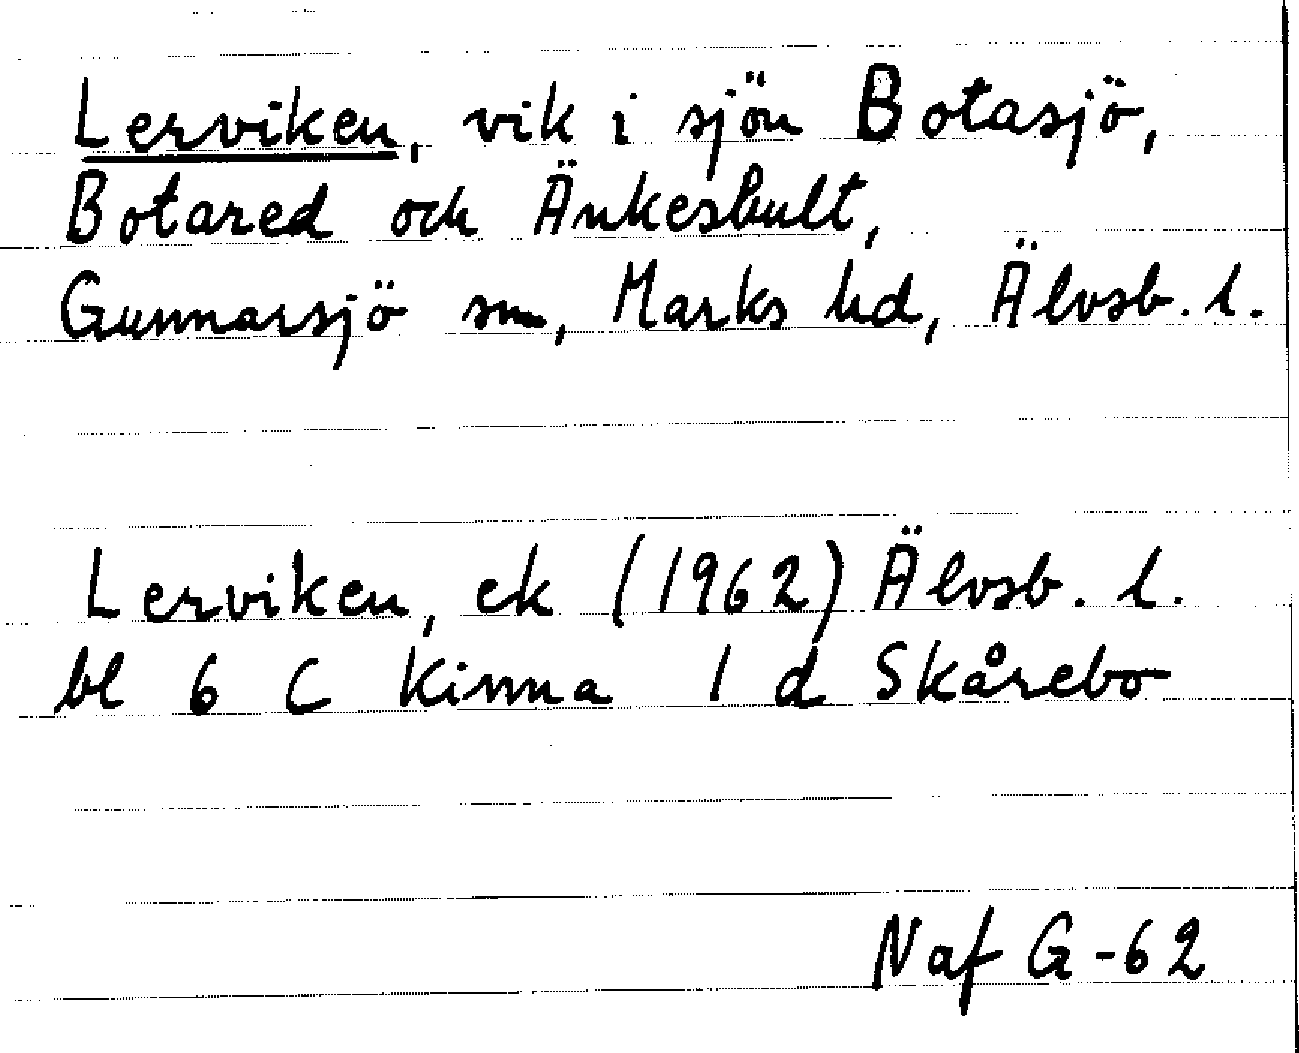 Lerviken, vik i sjön Botasjö,
Botared och Änkeskult,
Gunnarsjö sn, Marks hd, Älvsb. l.
Lerviken, ek (1962) Älvsb. l.
bl 6 C Kinna 1 d Skårebo
Naf G-62